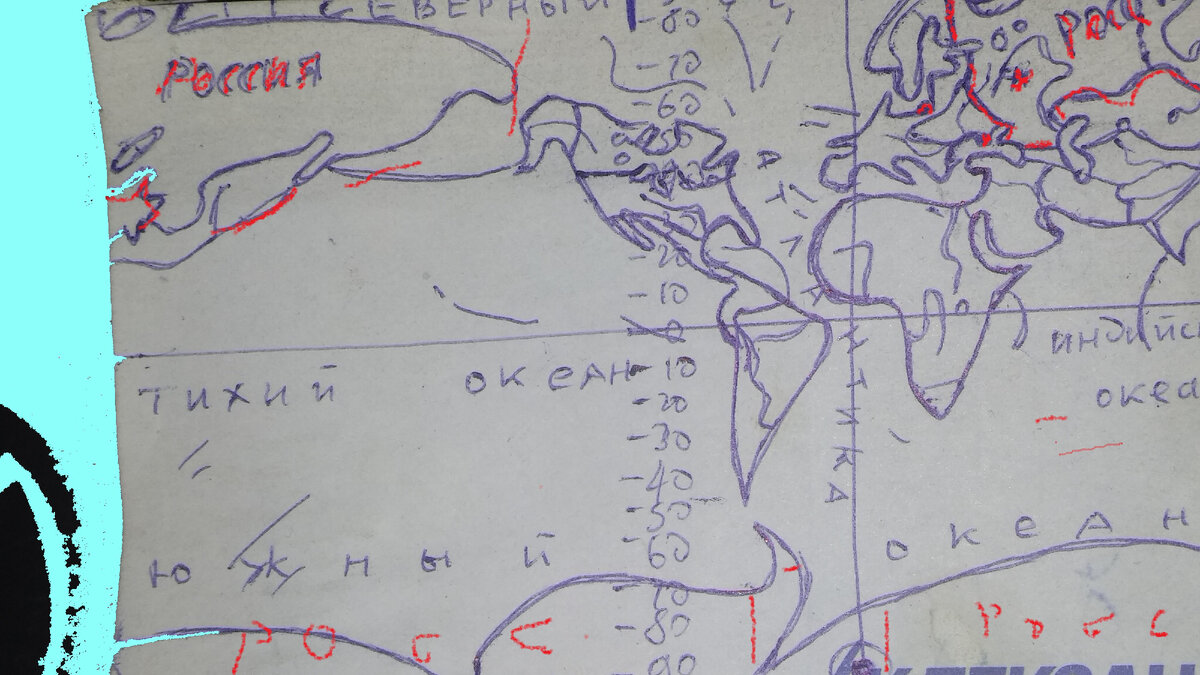 СЕВЕРНЫЙ
-80
РОССИЯ
РОСС
-70
-60
-20
-10
0
ИНДИЙС
ТИХИЙ ОКЕАН
-10
ОКЕА
-20
-30
АТЛАНТИКА
-40
-50
ЮЖНЫЙ
-60
ОКЕАН
-70
РОСС
-80
РОСС
-90